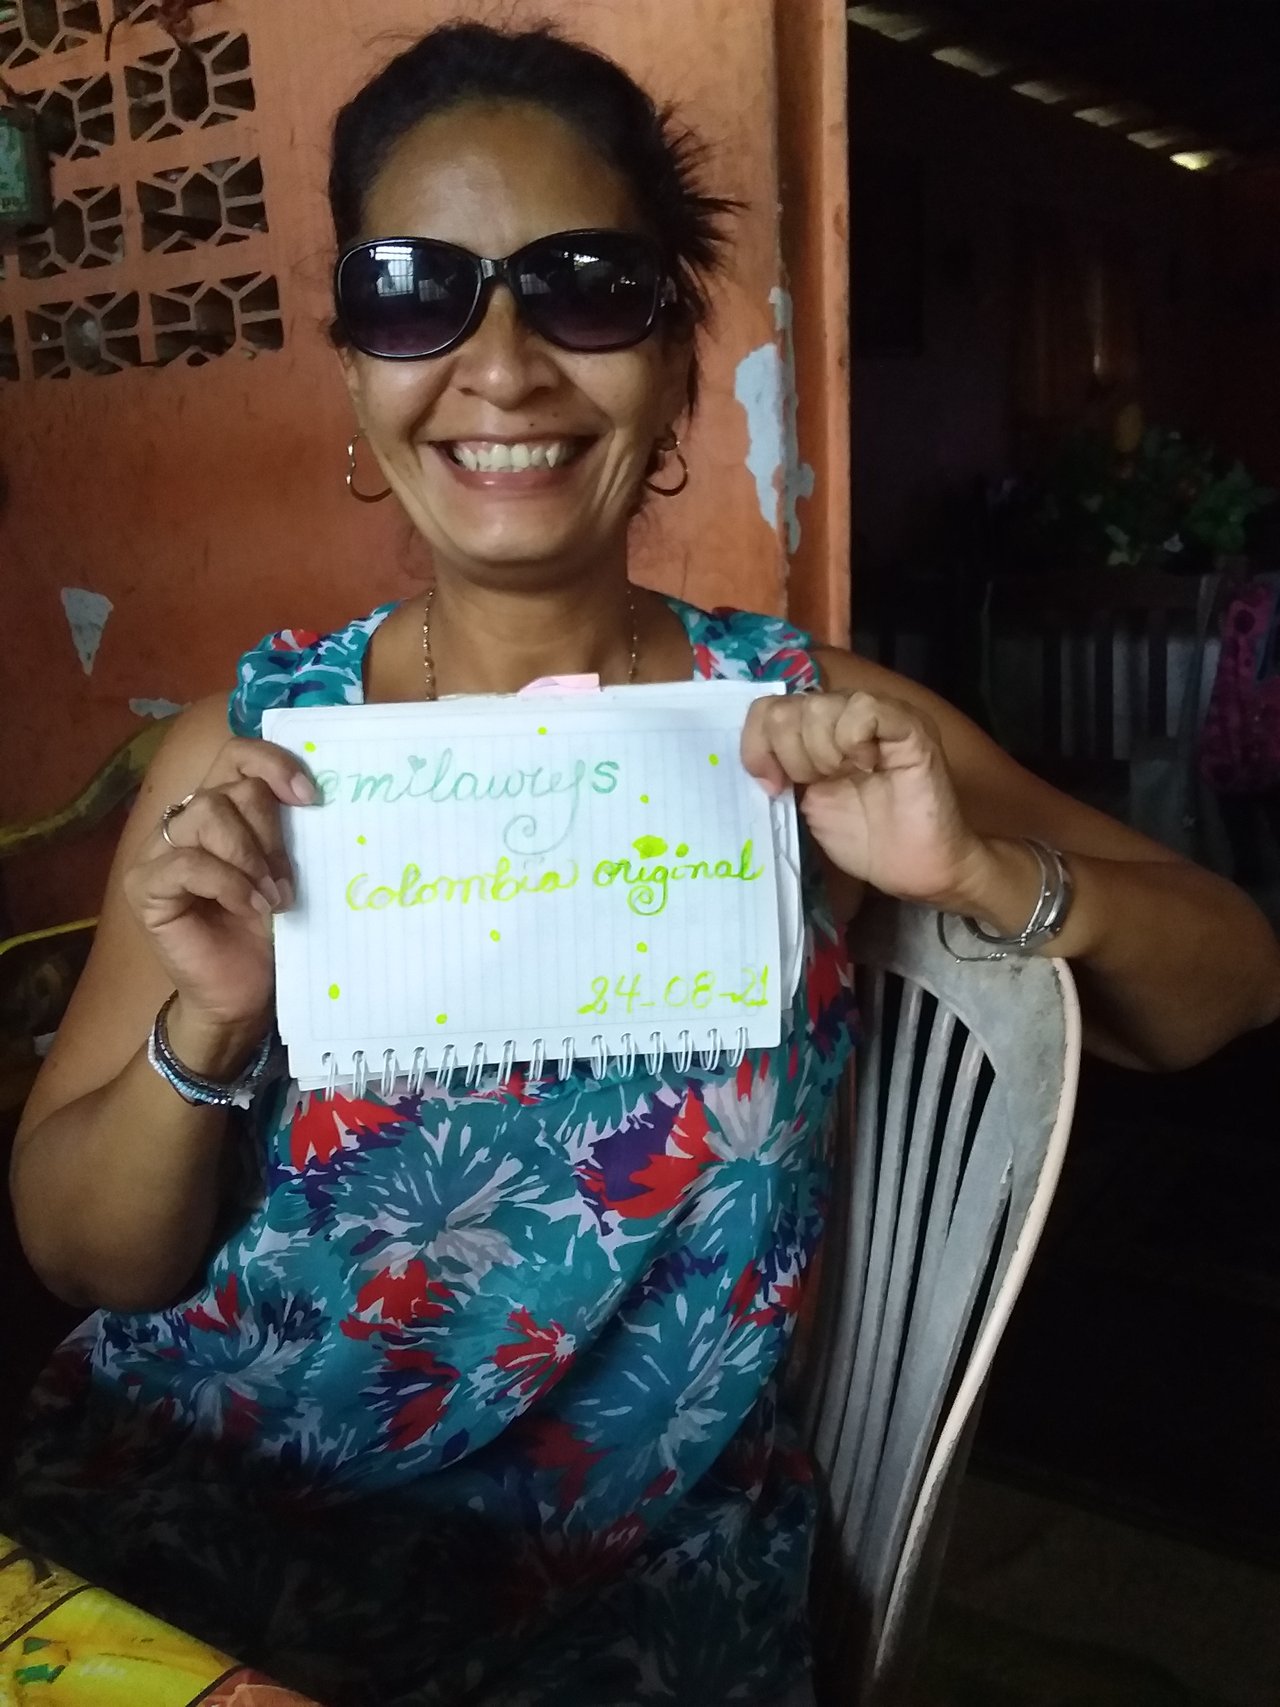 @milawrys
Colombia original
24-08-21